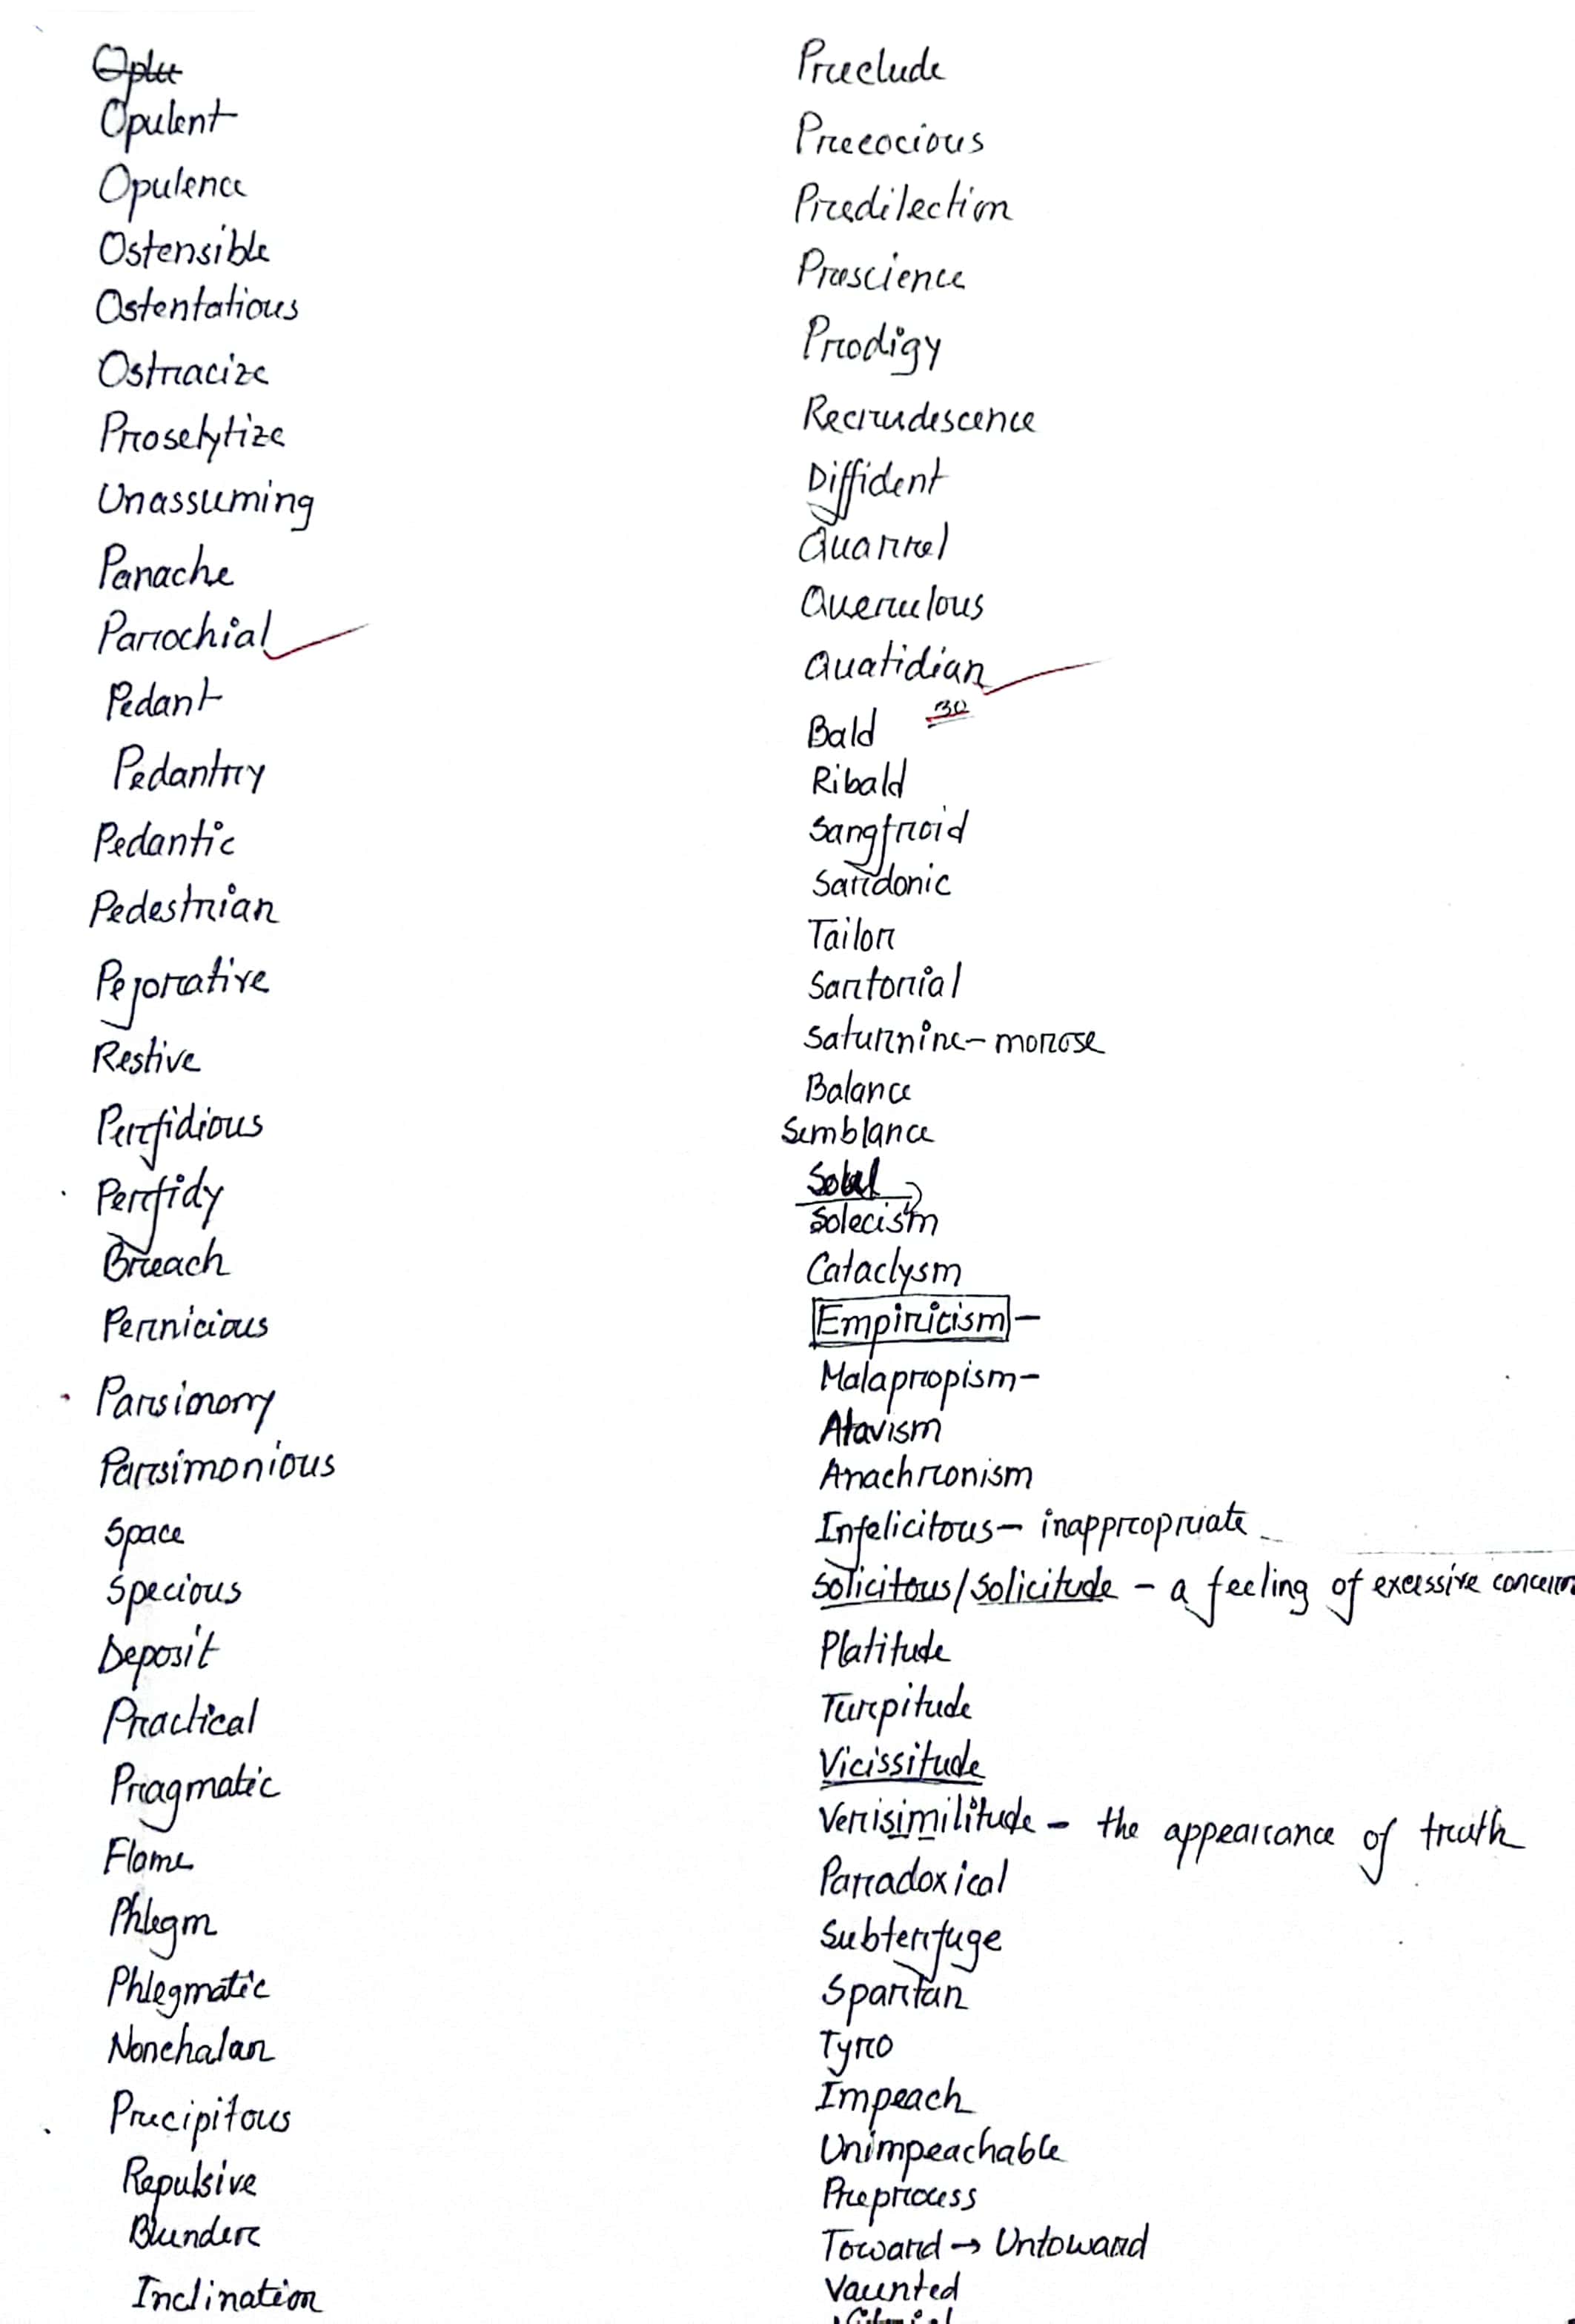 Opulent
Opulence
Ostensible
Ostentatious
Ostracize
Proselytize
Unassuming
Panache
Parochial
Pedant
Pedantry
Pedantic
Pedestrian
Pejorative
Restive
Perfidious
Perfidy
Breach
Pernicious
Parsimony
Parsimonious
Space
Specious
Deposit
Practical
Pragmatic
Flame
Phlegm
Phlegmatic
Nonchalan
Precipitous
Repulsive
Blunder
Inclination
Preclude
Precocious
Predilection
Prescience
Prodigy
Recrudescence
Diffident
Quarrel
Querulous
Quatidian
30
Bald
Ribald
Sangfroid
Sardonic
Tailor
Sartorial
Saturnine - morose
Balance
Semblance
Solecism
Cataclysm
Empiricism -
Malapropism -
Atavism
Anachronism
Infelicitous - inappropriate
Solicitous/Solicitude - a feeling of excessive concern
Platitude
Turpitude
Vicissitude
Verisimilitude - the appearance of truth
Paradoxical
Subterfuge
Spartan
Tyro
Impeach
Unimpeachable
Preprocess
Toward → Untoward
Vaunted